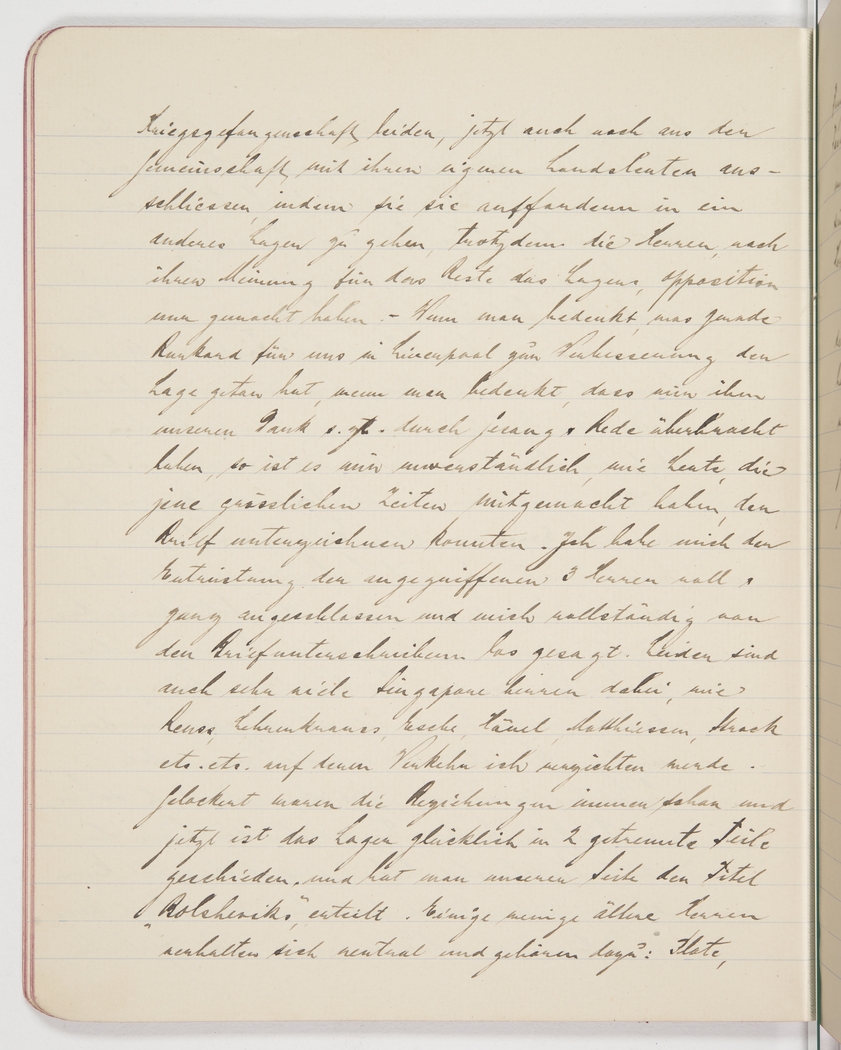 Kriegsgefangenschaft leiden, jetzt auch noch aus der
Gemeinschaft mit ihren eigenen Landsleuten aus-
schliessen, indem sie sie auffordern in ein
anderes Lager zu gehen, trotzdem die Herren, nach
ihrer Meinung für das Beste des Lagers, opposition
nur gemacht haben. - Wenn man bedenkt, was gerade
für uns in Liverpool zur Verbesserung der
Lage getan hat, wenn man bedenkt, dass wir ihm
unseren Dank s. Zt. durch Gesang & Rede überbracht
haben, so ist es mir unverständlich, wie Leute, die
jene grässlichen Zeiten mitgemacht haben, den
Brief unterzeichnen konnten. Ich habe mich der
Entrüstung der angegriffenen 3 Herren voll &
ganz angeschlossen und mich vollständig von
den Briefunterschreibern los gesagt. Leider sind
auch sehr viele Singapore herren dabei, wie
Reuss, Lehrenkrauss, Esche, Hänel, Matthiessen, Strack
etc. etc. auf deren Verkehr ich verzichten werde.
Gelockert waren die Beziehungen immer schon und
jetzt ist das Lager glücklich in 2 getrennte Teile
geschieden, und hat man unserer Seite den Titel
„Bolsheviks“, erteilt. Einige wenige ältere Herren
verhalten sich neutral und gehören dazu: Plate,